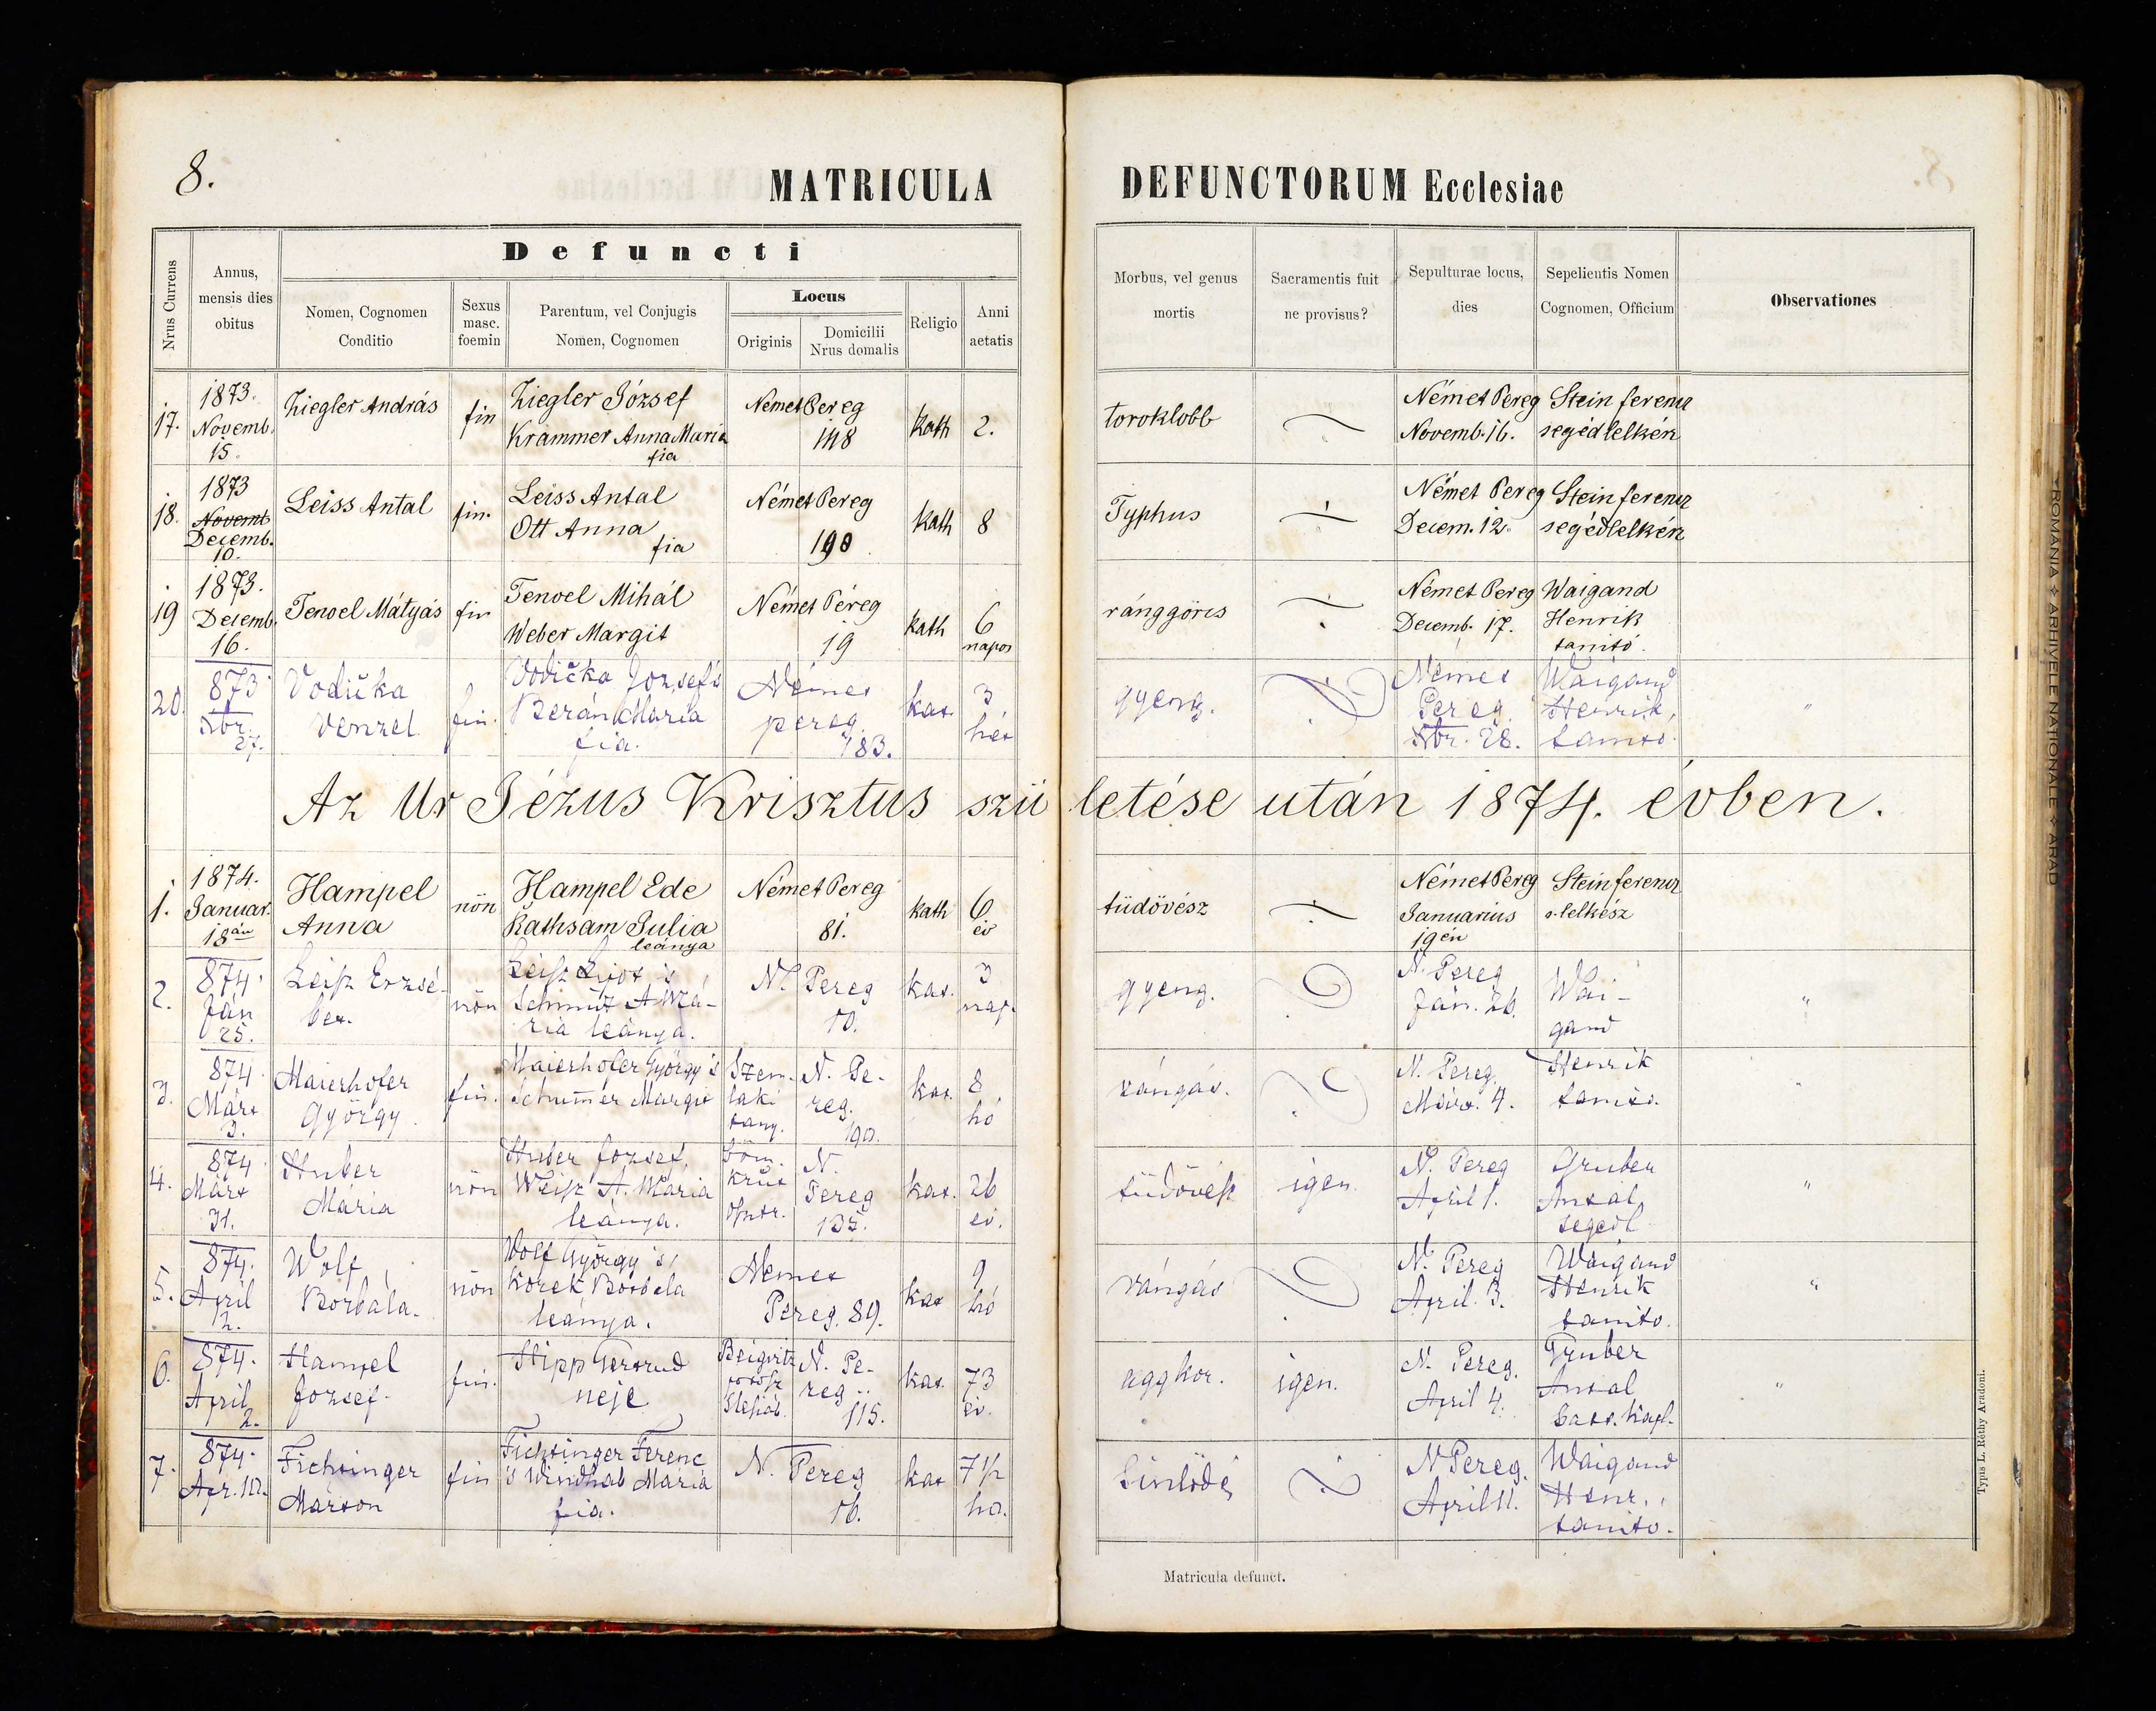 8.
MATRICULA DEFUNCTORUM Ecclesiae
Defuncti
Nrus Currens
Annus,
mensis dies
obitus
Nomen, Cognomen
Conditio
Sexus
masc.
foemin
Parentum, vel Conjugis
Nomen, Cognomen
Locus
Originis
Domicilii
Nrus domalis
Religio
Anni
aetatis
Morbus, vel genus
mortis
Sacramentis fuit
ne provisus?
Sepulturae locus,
dies
Sepelientis Nomen
Cognomen, Officium
Observationes
17.
1873.
Novemb.
15.
Ziegler András
fin
Ziegler József
Krammer Anna Maria
fia
Német Pereg
148
kath
2.
toroklobb
Német Pereg
Novemb. 16.
Stein ferencz
segédlelkén
18.
1873
Novemb
Decemb.
10.
Leiss Antal
fin.
Leiss Antal
Ott Anna
fia
Német Pereg
190
kath
8
Typhus
Német Pereg
Decem. 12.
Stein ferencz
segédlelkén
19
1873.
Decemb.
16.
Tenoel Mátyás
fin
Tenoel Mihál
Weber Margit
Német Péreg
19
kath
6
napos
ránggörcs
Német Pereg
Decemb. 17.
Waigand
Henrik
tanitó.
20.
873
Xbr.
27.
Vodička
Venzel
fin.
Vodička József s
Berán Maria
fia.
Német
pereg
183.
kat.
3
hét
gyeng.
Német
Pereg.
Xbr. 28.
Waigand
Henrik,
tanito.
"
Az Ur Jézus Krisztus születése után 1874. évben.
1.
1874.
Januar.
18án
Hampel
Anna
nön
Hampel Ede
Rathsam Julia
leánya
Német Pereg
81.
kath
6
év
tüdövész
Német Pereg
Januarius
19én
Stein ferencz
s. lelkész
2.
874.
Ján
25.
Leisz Erzsé-
bet.
nön
Schmitz A Má-
ria leánya.
N. Pereg
10.
kat.
3
nap.
gyeng.
N. Pereg
Ján. 26.
Wai-
gand
"
3.
874.
Márt
3.
Maierhofer
György.
fin.
Maierhofer György s
Margit
Szem-
laki
tany.
N. Pe-
reg.
190.
kat.
8
hó
rángás.
N. Pereg.
Márt. 4.
Henrik
tanito.
"
4.
874.
Márt
31.
Huber
Maria
nön
Huber Jozsef,
Weisz A. Maria
leánya.
N.
Pereg
135.
kat.
26
év.
tüdövész
igen.
N. Pereg
April 1.
Gruber
Antal
segédl.
"
5.
874.
April
2.
Wolf
Borbála.
nön
Wolf György s,
Korek Borbela
leánya.
Német
Pereg. 89.
kat
9
hó
rángás
N. Pereg
April. 3.
Waigand
Henrik
tanito.
"
6.
874.
April
2.
Hampel
Jozsef.
fin.
Hipp Gertrud
neje
N. Pe-
reg.
115.
kat.
73
év.
aggkor.
igen.
N. Pereg.
April 4.
Gruber
Antal
"
7.
874.
Apr. 10.
Fichtinger
Márton
fin
Fichtinger Ferenc
s Windhab Maria
fia.
N. Pereg
16.
kat
7 1/2
hó.
N Pereg.
April 11.
Waigand
Henr.,
tanito.
Matricula defunct.
Typis L. Réthy Aradoni.
ROMANIA ✧ ARHIVELE NATIONALE ✧ ARAD